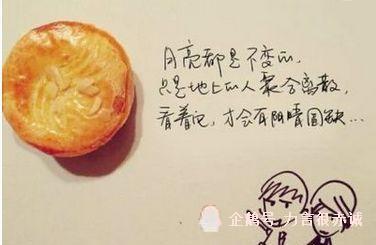 月亮都是不变的,
只是地上的人聚合离散,
看着它,才会有阴晴圆缺...
企鹅号 力言很赤诚